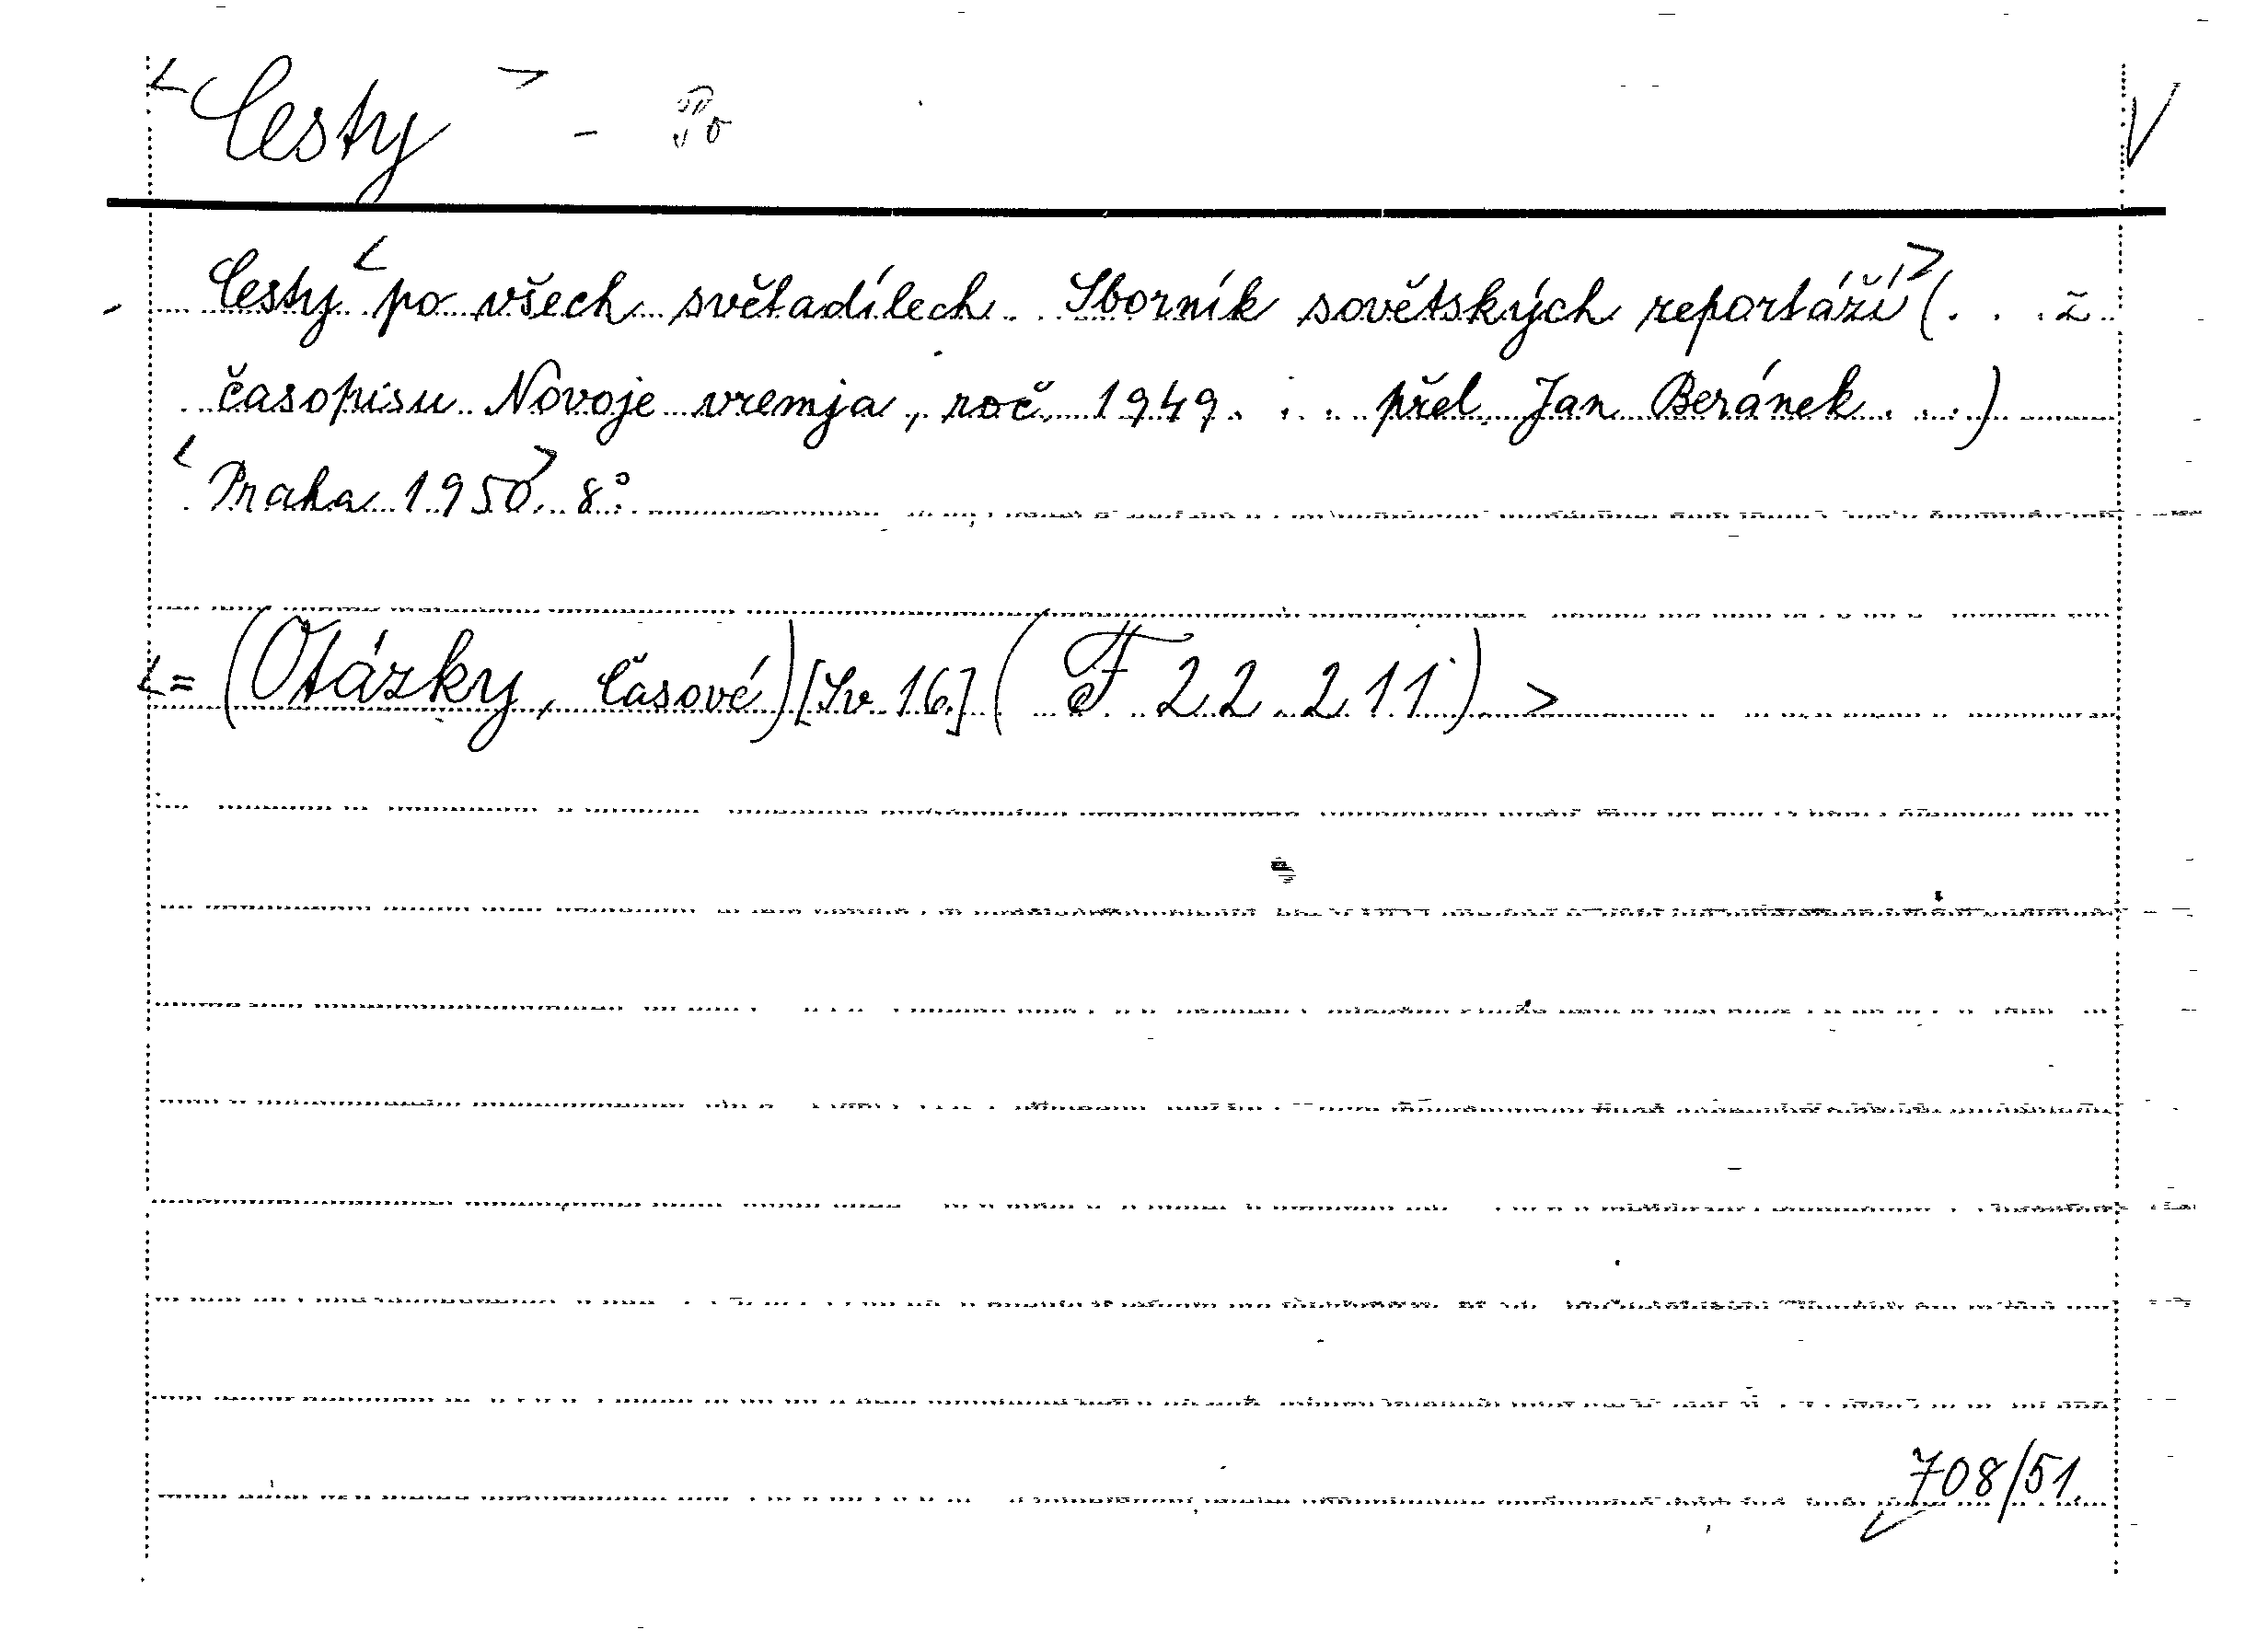 <Cesty> -
Cesty <po všech světadílech. Sborník sovětských reportáží> (. . . z
časopisu Novoje vremja, roč. 1949. . . přel. Jan Beránek . . .)
<Praha 1950>. 8°.
<= (Otázky, časové) [Sv. 16.] (F 22.211) >
708/51.